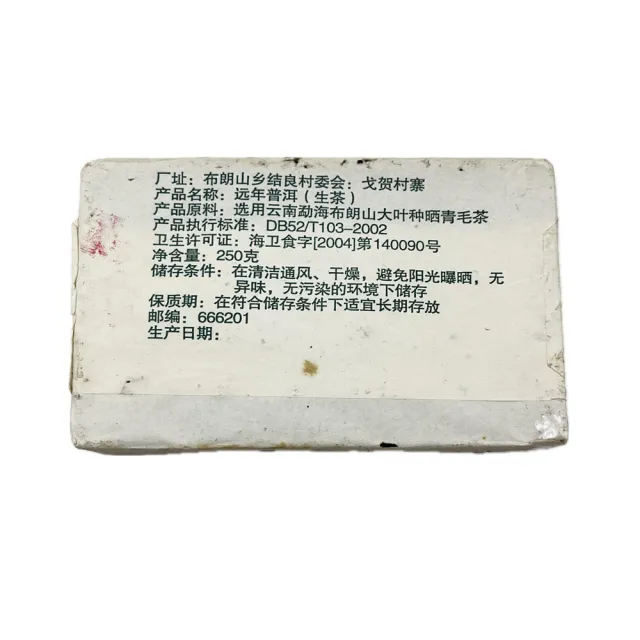 厂址：布朗山乡结良村委会：戈贺村寨
产品名称：远年普洱（生茶）
产品原料：选用云南勐海布朗山大叶种晒青毛茶
产品执行标准：DB52/T103-2002
卫生许可证：海卫食字[2004]第140090号
净含量：250克
储存条件：在清洁通风、干燥，避免阳光曝晒，无
异味，无污染的环境下储存
保质期：在符合储存条件下适宜长期存放
邮编：666201
生产日期：